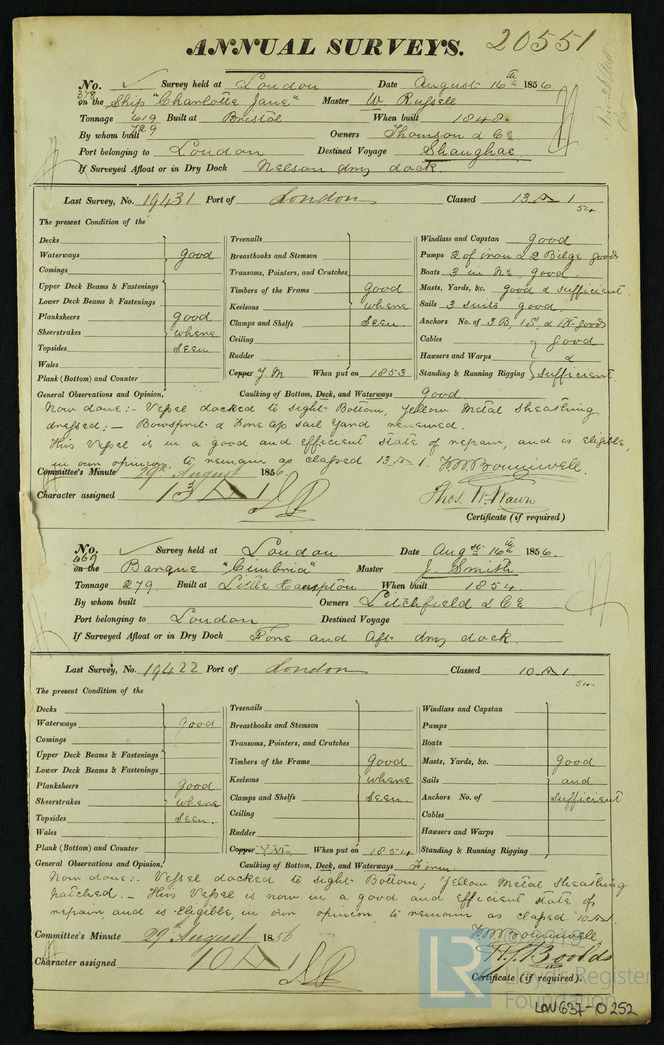 ANNUAL SURVEYS. 20551
No. 378 Survey held at London Date August 16th 1856
on the Ship "Charlotte Jane" Master W. Russell
Tonnage 619 729 Built at Bristol When built 1848
By whom built Owners Thomson & Co
Port belonging to London Destined Voyage Shanghae
If Surveyed Afloat or in Dry Dock Nelson dry dock
Last Survey, No. 19431 Port of London Classed 13 A 1
54
The present Condition of the
Decks
Waterways good
Comings
Upper Deck Beams & Fastenings
Lower Deck Beams & Fastenings
Planksheers good
Sheerstrakes where
Topsides seen
Wales
Plank (Bottom) and Counter
Treenails
Breasthooks and Stemson
Transoms, Pointers, and Crutches
Timbers of the Frame good
Keelsons where
Clamps and Shelfs seen.
Ceiling
Rudder
Copper Y.M. When put on 1853
Windlass and Capstan good
Pumps 2 of iron & 2 Bilge good
Boats 3 in No. good
Masts, Yards, &c. good & sufficient
Sails 3 suits good.
Anchors No. of 3 B, 1 S, & 1 K good
Cables good
Hawsers and Warps &
Standing & Running Rigging sufficient
General Observations and Opinion, Caulking of Bottom, Deck, and Waterways Good
Now done:- Vessel docked to sight Bottom, Yellow Metal Sheathing
dressed; - Bowsprit & Fore Top sail Yard renewed.
This Vessel is in a good and efficient state of repair, and is eligible,
in our opinion, to remain as classed 13 A 1.
Committee's Minute 29th August 1856
Character assigned 13 A 1
Certificate (if required)
No. 469 Survey held at London Date Augst 16th 1856.
on the Barque "Cumbria" Master J. Smith
Tonnage 279 Built at Little Hampton When built 1854
By whom built Owners Litchfield & Co
Port belonging to London Destined Voyage
If Surveyed Afloat or in Dry Dock Fore and Aft dry dock.
Last Survey, No. 19422 Port of London Classed 10 A 1
54.
The present Condition of the
Decks
Waterways good
Comings
Upper Deck Beams & Fastenings
Lower Deck Beams & Fastenings
Planksheers good
Sheerstrakes where
Topsides seen.
Wales
Plank (Bottom) and Counter
Treenails
Breasthooks and Stemson
Transoms, Pointers, and Crutches
Timbers of the Frame good
Keelsons where
Clamps and Shelfs seen.
Ceiling
Rudder
Copper Y.M. When put on 1854
Windlass and Capstan
Pumps
Boats
Masts, Yards, &c. good
Sails and
Anchors No. of sufficient
Cables
Hawsers and Warps
Standing & Running Rigging
General Observations and Opinion, Caulking of Bottom, Deck, and Waterways Firm.
Now done:- Vessel docked to sight Bottom; Yellow Metal Sheathing
patched. - This Vessel is now in a good and efficient state of
repair, and is Eligible, in our opinion, to remain as classed 10 A 1
Committee's Minute 29th August 1856
Character assigned 10 A 1
Certificate (if required).
LR
Lloyd's Register
Foundation
LON637-0252